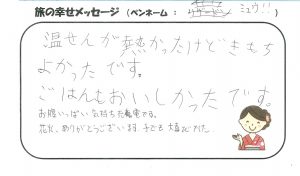 旅の幸せメッセージ (ペンネーム : ミュウ!!)
温せんが熱かったけどきもち
よかったです。
ごはんもおいしかったです。
お腹いっぱい 気持ちた
花火、ありがとうございます 子ども 大喜び